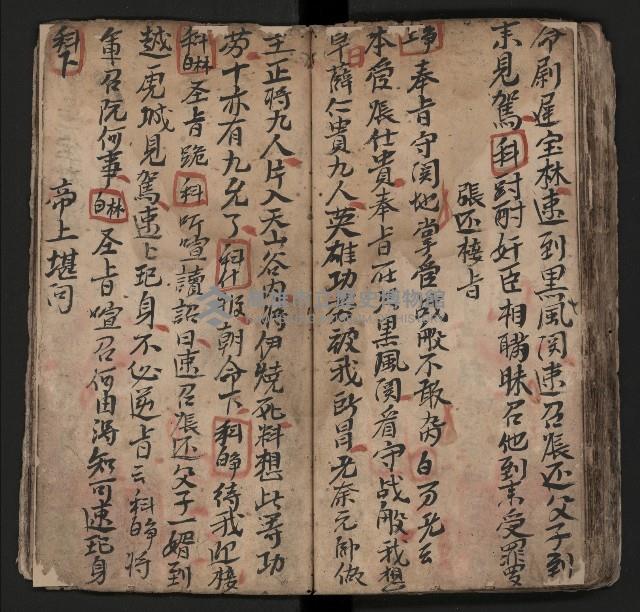 命尉遲宝林速到黑風関速召張还父子到
来見駕科討耐奸臣相瞞昧召他到来受罪
張还接旨
奉旨守関地掌管战般不敢 白 老云
本受張仕貴奉旨在 黑風関看守战般我想
早薛仁貴九人英雄功 被我所冒 老奈元帥做
主正将九人片入天山谷内将伊燒死料想此等功
劳十亦有九允了科 報朝命下科净待我迎接
科白林圣旨跪科听喧讀詔曰速召張还父子一婿到
越虎城見駕速上起身不必逆旨云科净将
軍召阮何事白林圣旨喧召何由得知可速起身
科下
帝上堪问